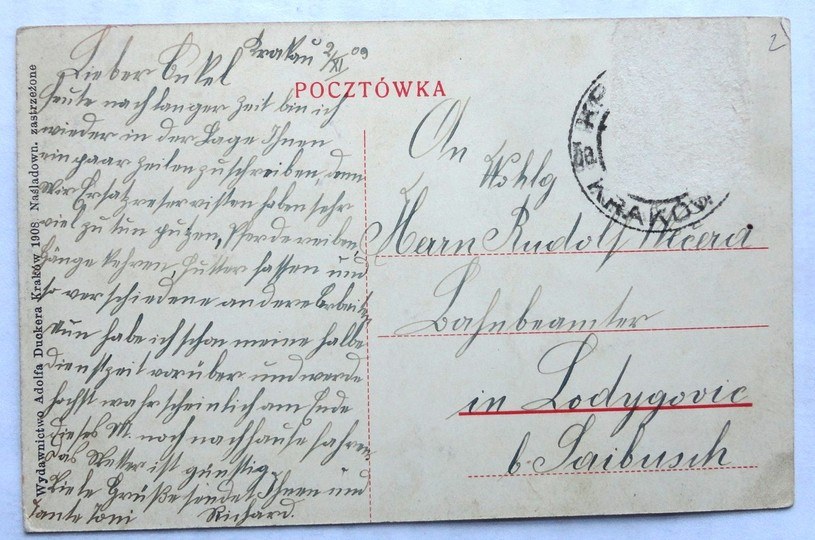 Krakau 2/XI 09
Lieber Onkel
heute nach langer Zeit bin ich
wieder in der Lage Ihnen
ein paar Zeilen zu schreiben, denn
Wir Ersatzreservisten haben sehr
viel zu tun putzen, Pferdereiben,
Gänge kehren, Futter fassen und
so verschiedene andere Arbeiten
Nun habe ich schon meine halbe
Dienstzeit vorüber und werde
höchst wahrscheinlich am Ende
dieses M. noch nachhause fahren
Das Wetter ist günstig
Viele Grüße sendet Ihnen und
Tante Toni Richard.
POCZTÓWKA
An
Wohlg
Herrn Rudolf Wečera
Bahnbeamter
in Lodygovic
b. Saibusch
KRAKÓW
2
Wydawnictwo Adolfa Duckera Kraków 1908 Naśladown. zastrzeżone